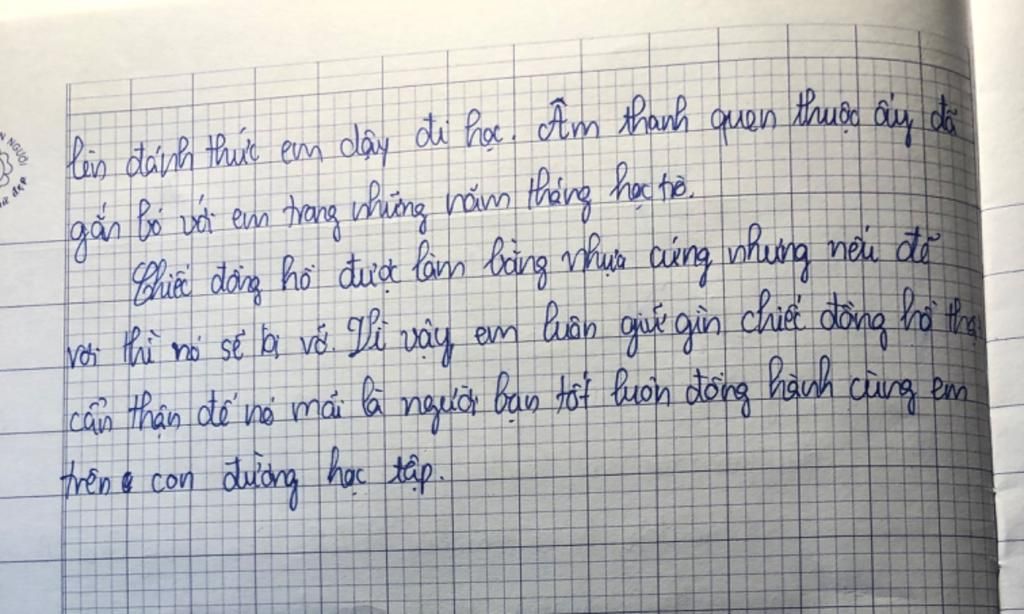 lên đánh thức em dậy đi học. Âm thanh quen thuộc ấy đã
gắn bó với em trong những năm tháng học trò.
Chiếc đồng hồ được làm bằng nhựa cứng nhưng nếu để
rơi thì nó sẽ bị vỡ. Vì vậy em luôn giữ gìn chiếc đồng hồ
cẩn thận để nó mãi là người bạn tốt luôn đồng hành cùng em
trên con đường học tập.
NGƯỜI